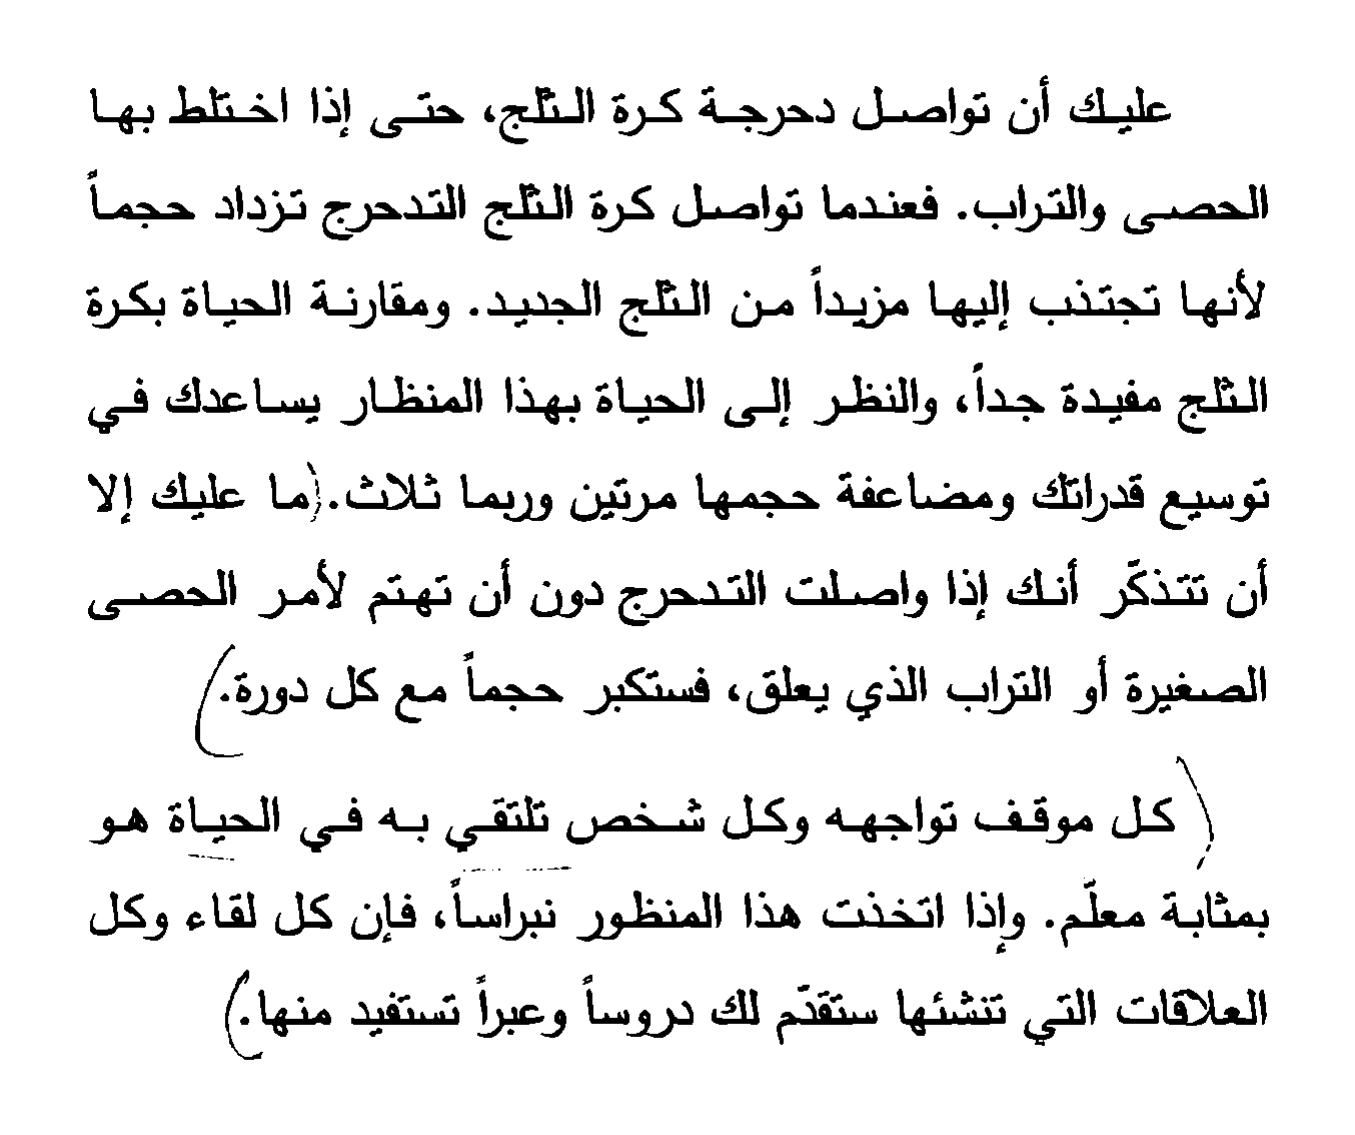 عليك أن تواصل دحرجة كرة الثلج، حتى إذا اختلط بها
الحصى والتراب. فعندما تواصل كرة الثلج التدحرج تزداد حجماً
لأنها تجتذب إليها مزيداً من الثلج الجديد. ومقارنة الحياة بكرة
الثلج مفيدة جداً، والنظر إلى الحياة بهذا المنظار يساعدك في
توسيع قدراتك ومضاعفة حجمها مرتين وربما ثلاث. (ما عليك إلا
أن تتذكّر أنك إذا واصلت التدحرج دون أن تهتم لأمر الحصى
الصغيرة أو التراب الذي يعلق، فستكبر حجماً مع كل دورة.)
(كل موقف تواجهه وكل شخص تلتقي به في الحياة هو
بمثابة معلّم. وإذا اتخذت هذا المنظور نبراساً، فإن كل لقاء وكل
العلاقات التي تنشئها ستقدّم لك دروساً وعبراً تستفيد منها.)